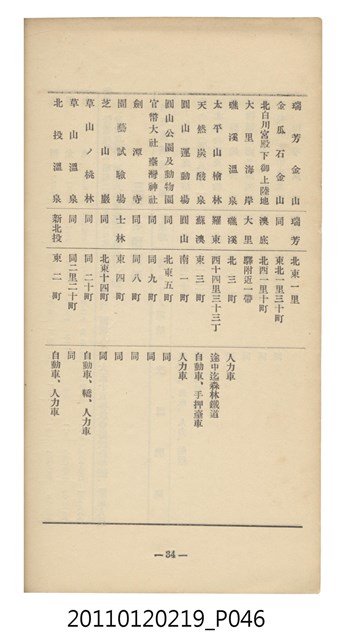 瑞芳金山 瑞芳 北東一里
金瓜石金山 同 東北一里三十町
北白川宮殿下御上陸地 澳底 北四一里十町
大里海岸 大里 驛附近一帶
礁溪溫泉 礁溪 北三町 人力車
太平山檜林 羅東 西十四里三十三丁 途中迄森林鐵道
天然炭酸泉 蘇澳 東三町 自動車、手押臺車
圓山運動場 圓山 南一町 人力車
圓山公園及動物園 同 北東五町 同
官幣大社臺灣神社 同 同九町 同
劍潭寺 同 同八町 同
園藝試驗場 士林 東四町 同
芝山巖 同 北東十四町 同
草山ノ桃林 同 同二十町 自動車、轎、人力車
草山溫泉 同 同二里二十町 同
北投溫泉 新北投 東二町 自動車、人力車
— 34 —
20110120219_P046